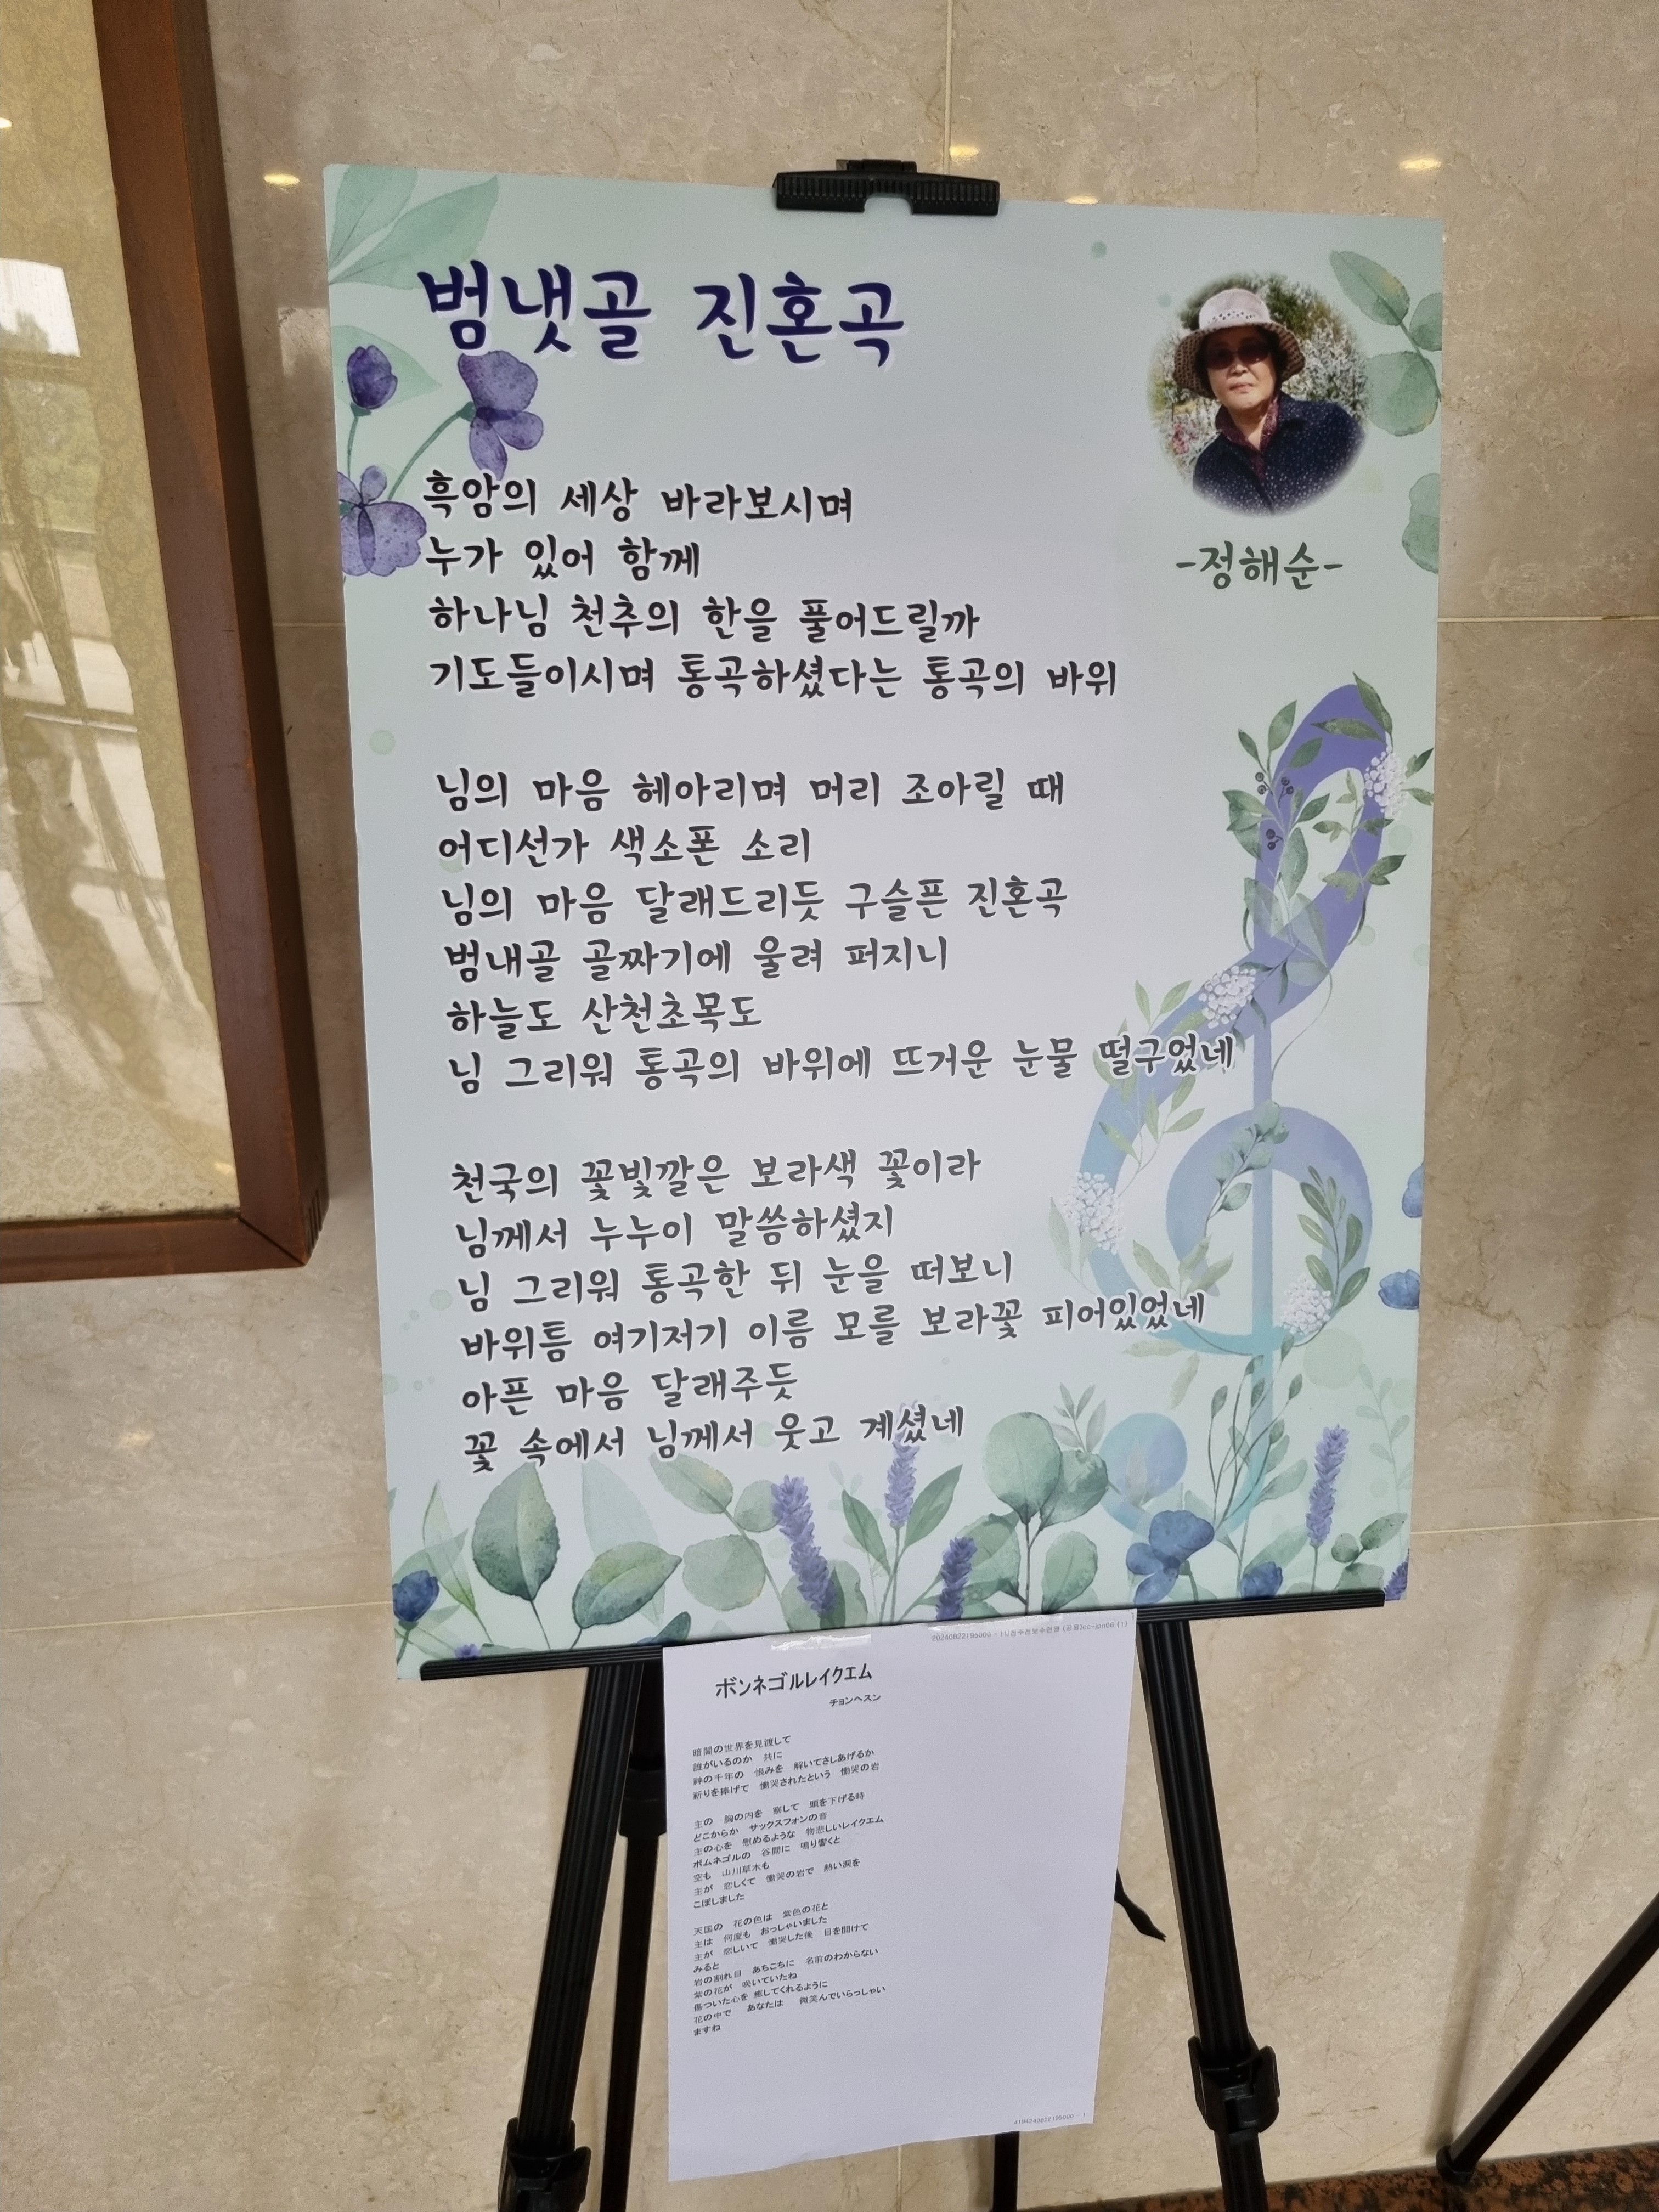 범냇골 진혼곡
-정해순-
흑암의 세상 바라보시며
누가 있어 함께
하나님 천추의 한을 풀어드릴까
기도들이시며 통곡하셨다는 통곡의 바위
님의 마음 헤아리며 머리 조아릴 때
어디선가 색소폰 소리
님의 마음 달래드리듯 구슬픈 진혼곡
범내골 골짜기에 울려 퍼지니
하늘도 산천초목도
님 그리워 통곡의 바위에 뜨거운 눈물 떨구었네
천국의 꽃빛깔은 보라색 꽃이라
님께서 누누이 말씀하셨지
님 그리워 통곡한 뒤 눈을 떠보니
바위틈 여기저기 이름 모를 보라꽃 피어있었네
아픈 마음 달래주듯
꽃 속에서 님께서 웃고 계셨네
ボンネゴルレイクエム
チョンヘスン
暗闇の世界を見渡して
誰がいるのか 共に
神の千年の 恨みを 解いてさしあげるか
祈りを捧げて 慟哭されたという 慟哭の岩
主の 胸の内を 察して 頭を下げる時
どこからか サックスフォンの音
主の心を 慰めるような 物悲しいレイクエム
ボムネゴルの 谷間に 鳴り響くと
空も 山川草木も
主が 恋しくて 慟哭の岩で 熱い涙を
こぼしました
天国の 花の色は 紫色の花と
主は 何度も おっしゃいました
主が 恋しいて 慟哭した後 目を開けて
みると
岩の割れ目 あちこちに 名前のわからない
紫の花が 咲いていたね
傷ついた心を 癒してくれるように
花の中で あなたは 微笑んでいらっしゃい
ますね